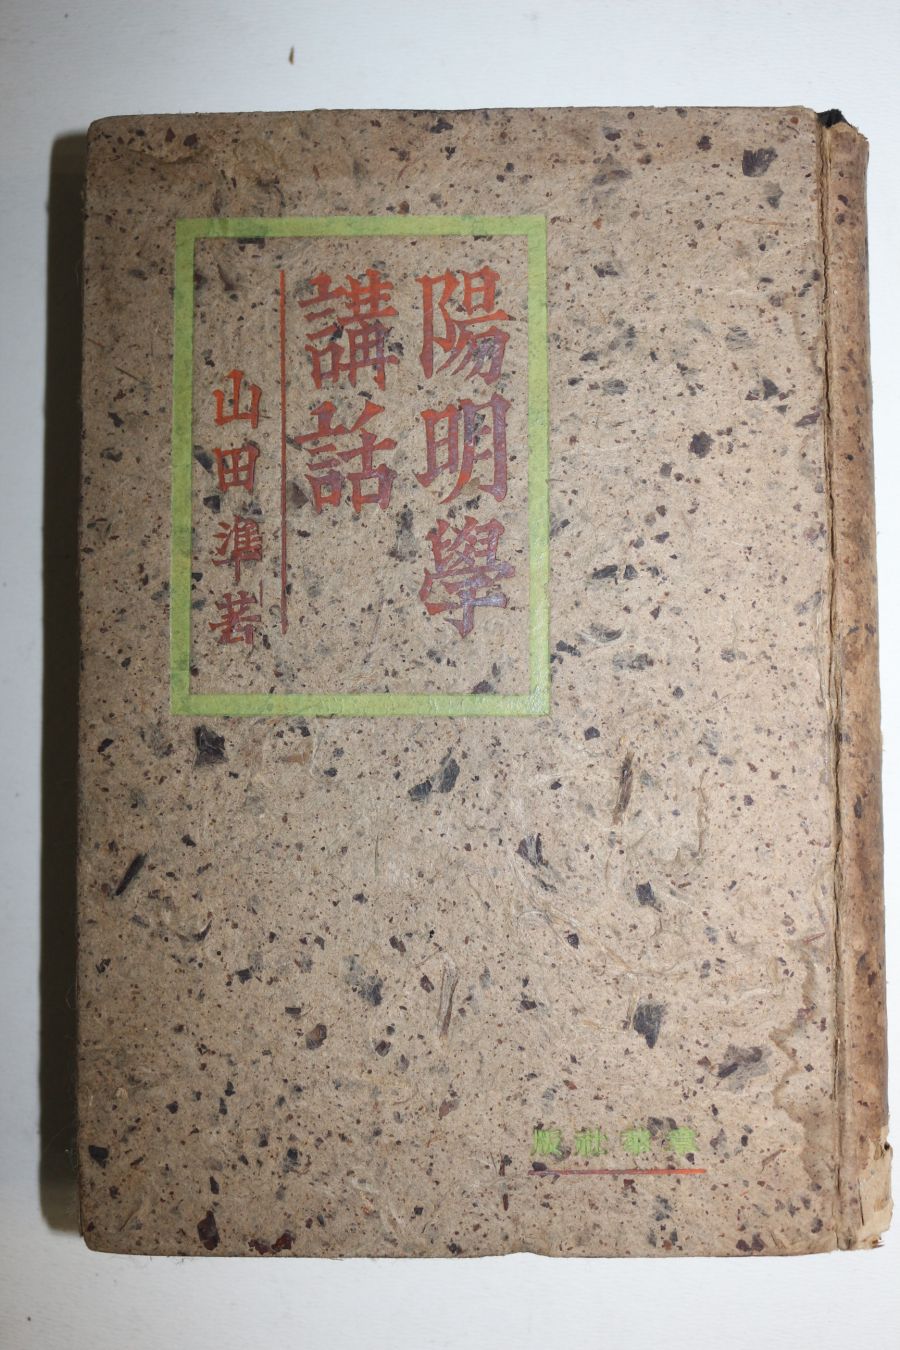 陽明學
講話
山田準著
章華社版